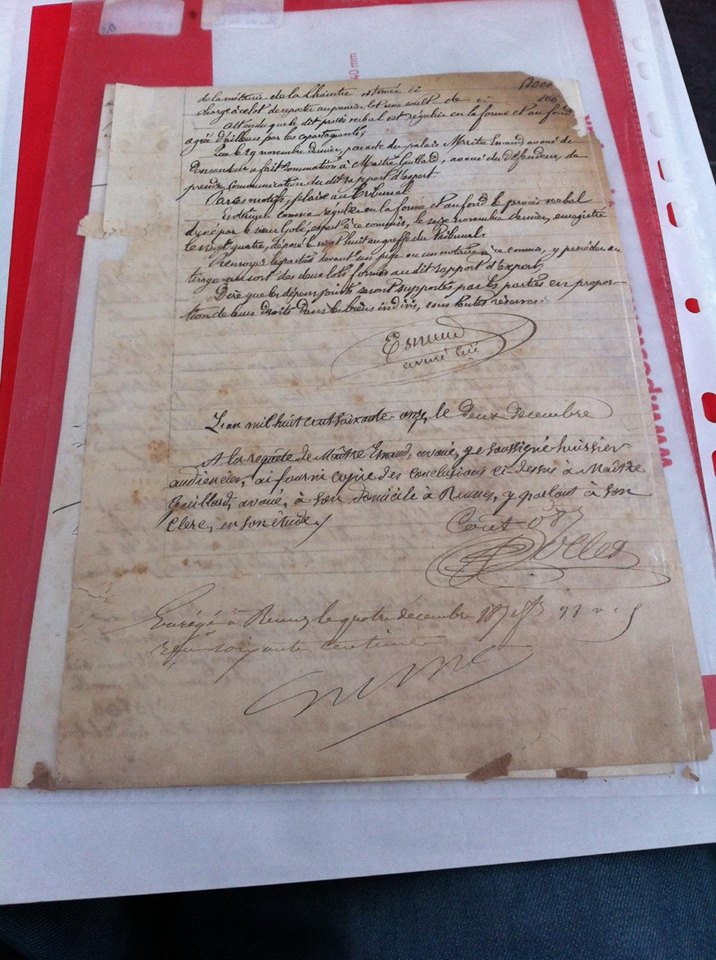 de la métairie de la Chaintre estimée ci 12000
charge à ce lot de reporter au premier lot une soulte de ci 100
Attendu que le dit procès verbal est régulier en la forme et au fond
agréé d'ailleurs par les copartageants;
Que le 29 novembre dernier, par acte du palais Maître Enaud avoué du
Demandeur a fait sommation à Maître Guillard, avoué du défendeur de
prendre communication du dit rapport d'expert.
Par ces motifs, plaise au Tribunal
Entériner comme régulier en la forme et au fond le procès verbal
dressé par le sieur expert à ce commis, le seize novembre dernier, enregistré
le vingt quatre, déposé le vingt huit au greffe du Tribunal.
Renvoyer les parties devant un juge ou un notaire à ce commis, y procéder au
tirage au sort des deux lots formés au dit rapport d'expert,
Dire que les dépens seront supportés par les parties en propor-
tion de leurs droits dans les biens indivis, sous toutes réserves.
L'an mil huit cent soixante onze, le deux décembre
A la requête de Maître Enaud, avoué, je soussigné huissier
audiencier, ai fourni copie des conclusions ci-dessus à Maître
Guillard, avoué, à son domicile à Rennes, y parlant à son
Clerc, en son étude
Coût
à Rennes le quatre décembre
soixante centimes
40 mm
www.